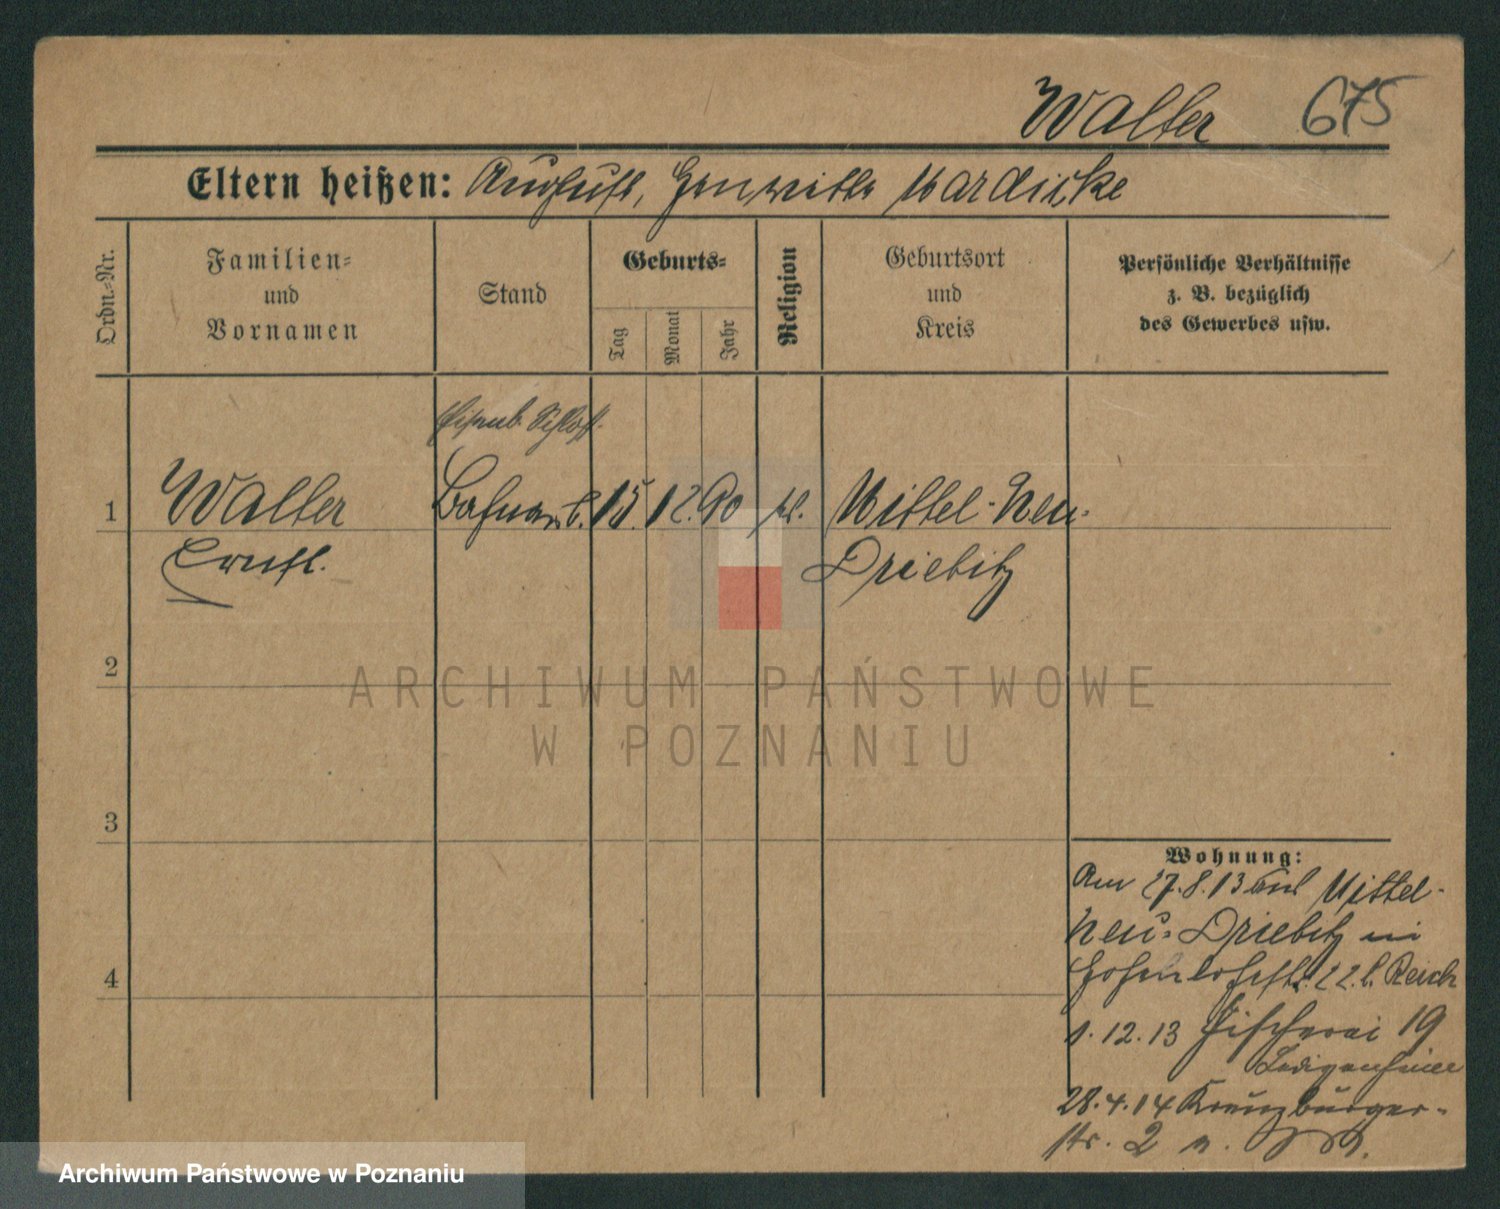 Walter 675
Eltern heißen: August, Henriette Mardicke
Ordn.=Nr.
Familien=
und
Vornamen
Stand
Geburts=
Tag
Monat
Jahr
Religion
Geburtsort
und
Kreis
Persönliche Verhältnisse
z. B. bezüglich
des Gewerbes usw.
1 Walter 15. 12. 90 Mittel-Neu-
Ernst. Driebitz
2
ARCHIWUM PAŃSTWOWE
W POZNANIU
3
4
Wohnung:
Am 27.8.13 Mittel-
Neu-Driebitz
Hohenlohestr. 22 b. Reich
1.12.13 Fischerei 19
Ledigenheim
28.4.14 Kreuzburger-
str. 2
Archiwum Państwowe w Poznaniu